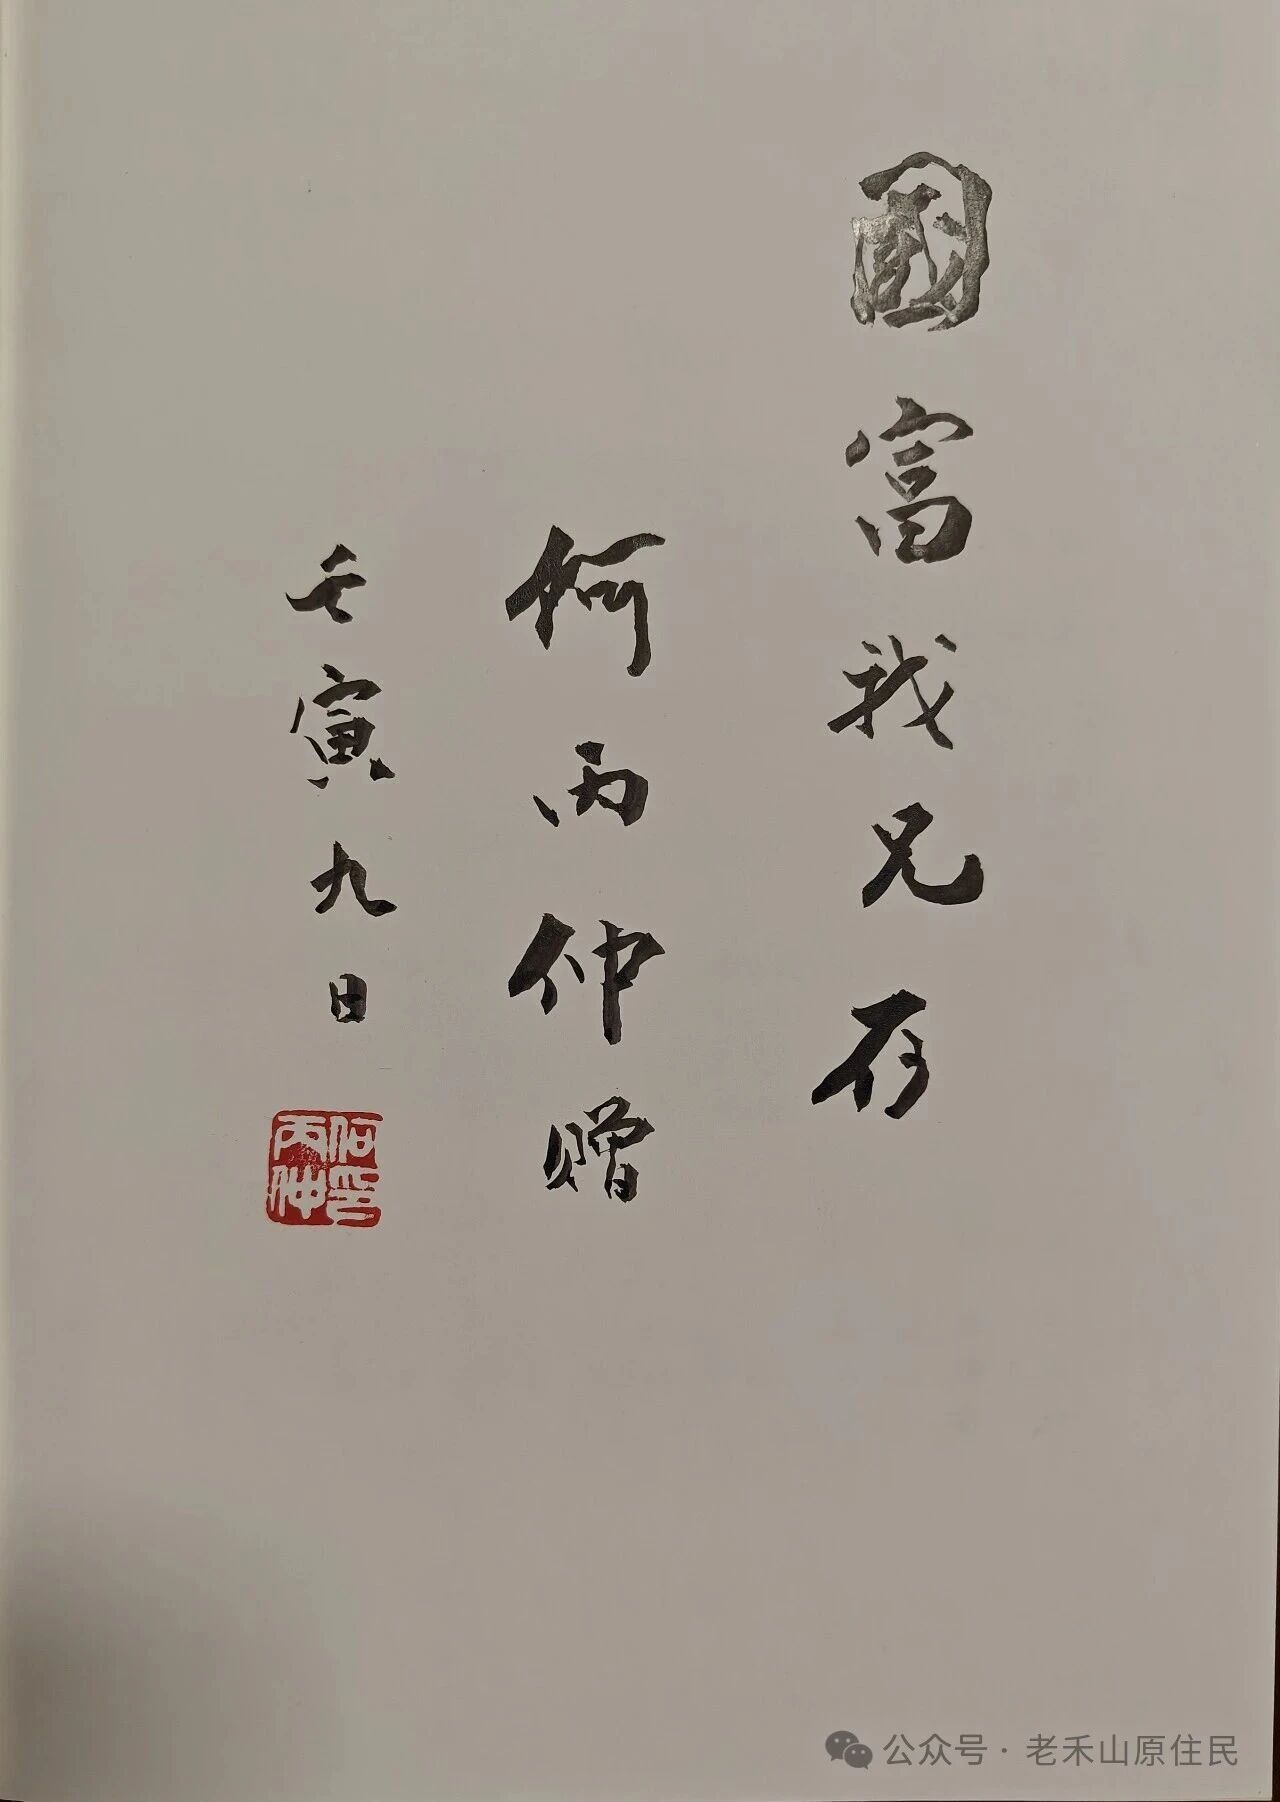 國富我兄存
何丙仲赠
壬寅九日
何印丙仲
公众号·老禾山原住民